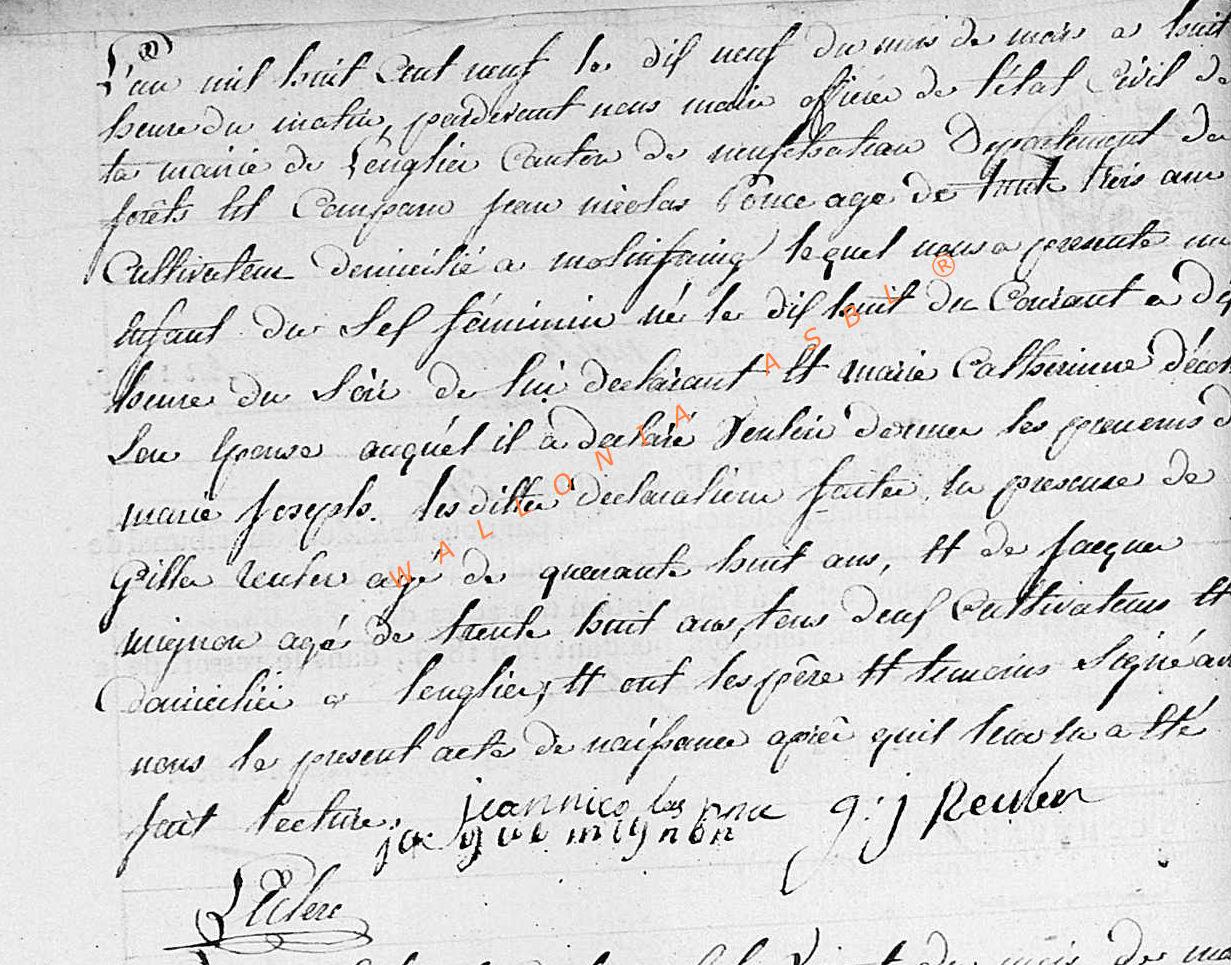 L'an mil huit cent neuf le dix neuf du mois de mars a huit
heure du matin, pardevant nous maire officier de l'état Civil de
la mairie de Lenglier Canton de neufchateau Departement de
forêts est Comparu jean nicolas Ponce age de trente trois ans
Cultivateur domicilié a molinfaing lequel nous a presenté un
Enfant du Sex féminin né le dix huit du Courant a
heure du Soir de lui declarant Et marie Catherinne
Son Epouse auquel il a declaré Vouloir donner les prenoms d
marie joseph. les dittes declarations faites en presence de
Gilles reuter agé de quarante huit ans, Et de jacque
mignon agé de trente huit ans, tous deux Cultivateurs Et
domicilié a lenglier, Et ont les père Et temoins Signé
nous le present acte de naissance après quil leur en a été
fait lecture.
jean nicolas ponce g: j Reuter
jacque mignon
LEClerc
WALLONIA ASBL ®
du mois de